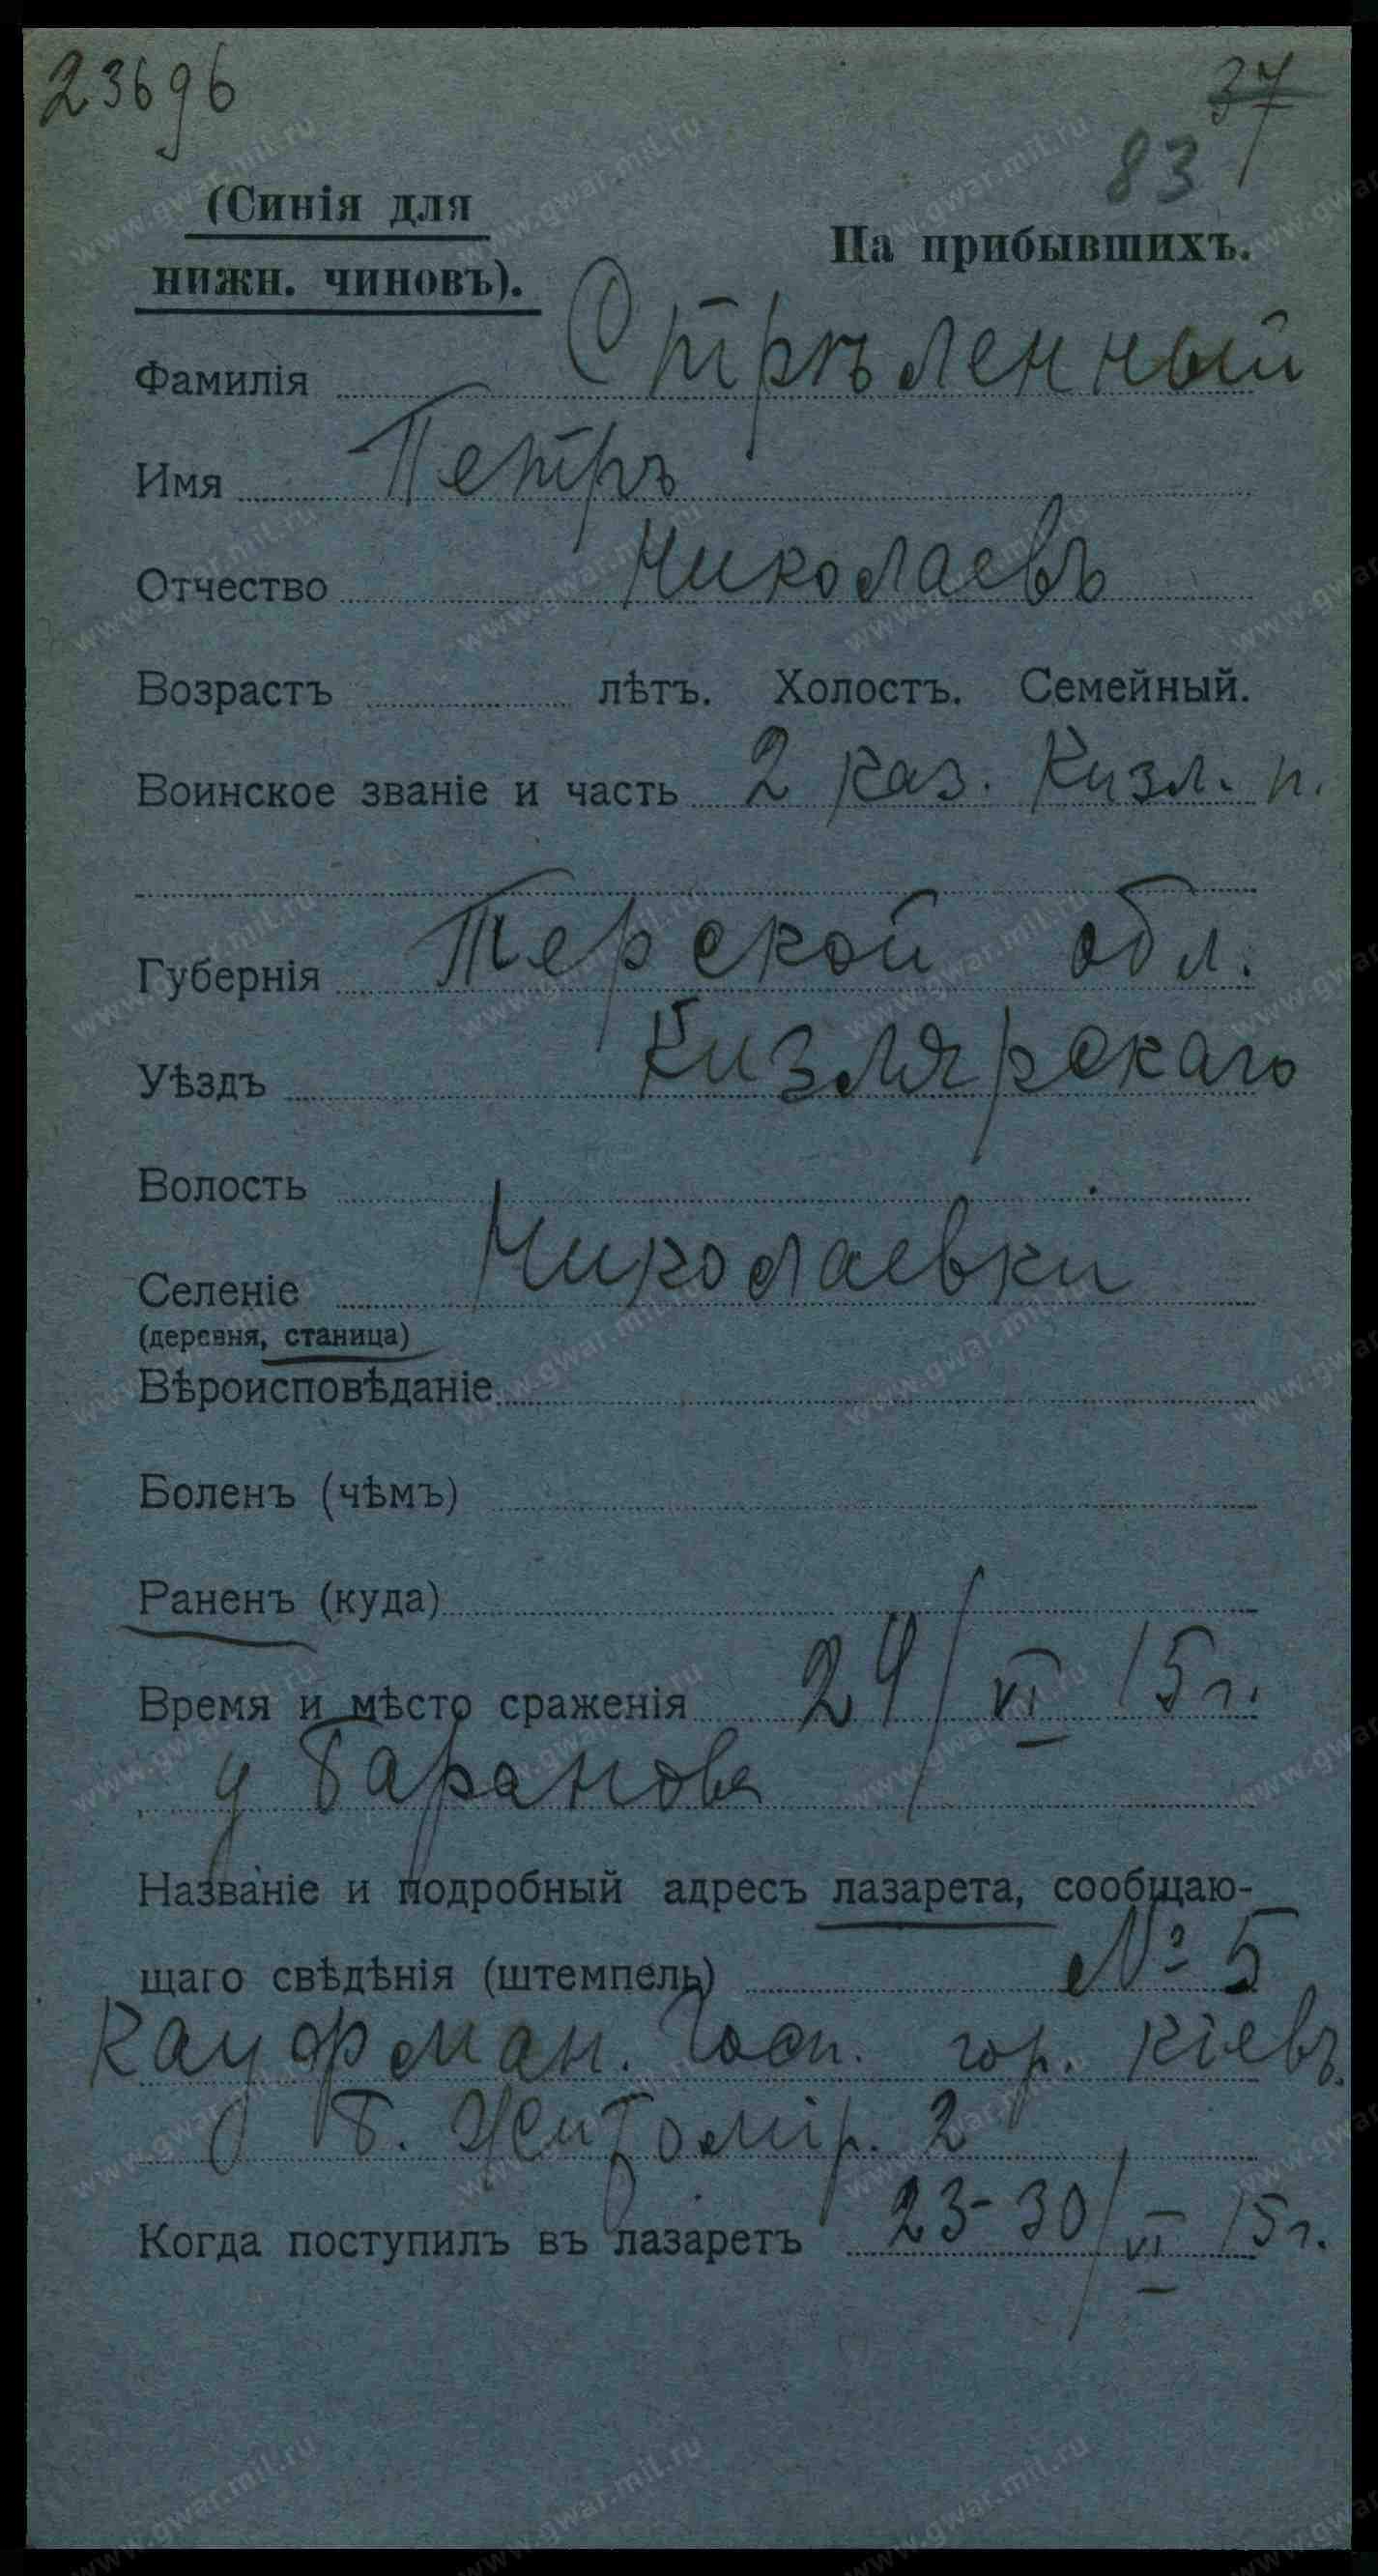 23696
37
83
(Синія для
нижн. чиновъ).
На прибывшихъ.
Фамилія Стрѣленный
Имя Петръ
Отчество Николаевъ
Возрастъ лѣтъ. Холостъ. Семейный.
Воинское званіе и часть 2 каз. Кизл. п.
Губернія Терской обл.
Уѣздъ Кизлярскаго
Волость
Селеніе Николаевки
(деревня, станица)
Вѣроисповѣданіе
Боленъ (чѣмъ)
Раненъ (куда)
Время и мѣсто сраженія 24/VI 15 г.
у Баранова
Названіе и подробный адресъ лазарета, сообщаю-
щаго свѣдѣнія (штемпель) № 5
Кауфман. Госп. гор. Кіевъ.
Б. Житомір. 2
Когда поступилъ въ лазаретъ 23-30/VI 15 г.